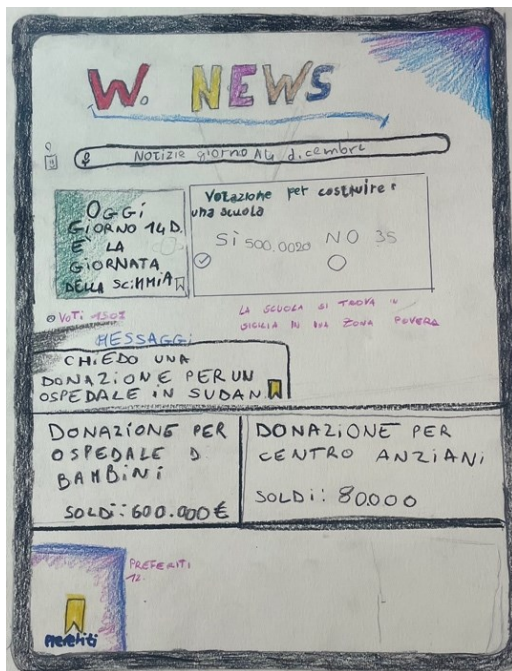 W. NEWS
NOTIZIE giorno 14 dicembre
OGGi
GiORNO 14 D.
E' LA
GiORNATA
DELLA SCiMMiA
Votazione per costruire
una scuola
Sì 500.0020 NO 35
VOTi
LA SCUOLA Si TROVA iN
SiCiLiA iN UNA ZONA POVERA
MESSAGGi
CHiEDO UNA
DONAZiONE PER UN
OSPEDALE iN SUDAN
DONAZiONE PER
OSPEDALE D
BAMBiNi
SOLDi: 600.000€
DONAZiONE PER
CENTRO ANZiANi
SOLDi: 80.000
PREFERiTi
12
Preferiti